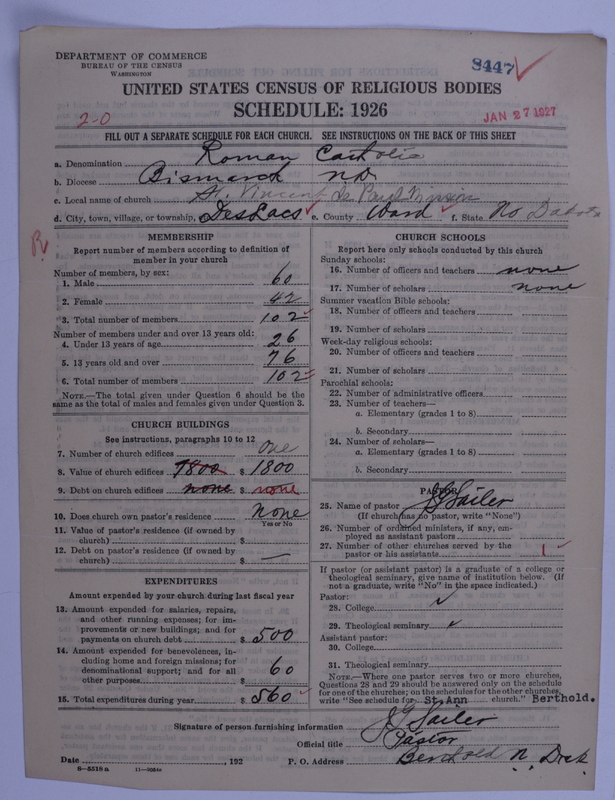 DEPARTMENT OF COMMERCE
BUREAU OF THE CENSUS
WASHINGTON
8447
UNITED STATES CENSUS OF RELIGIOUS BODIES
SCHEDULE: 1926
2-0
JAN 27 1927
FILL OUT A SEPARATE SCHEDULE FOR EACH CHURCH. SEE INSTRUCTIONS ON THE BACK OF THIS SHEET
a. Denomination Roman Catholic
b. Diocese Bismarck N.D.
c. Local name of church St. Vincent De Paul Mission
d. City, town, village, or township, DesLacs e. County Ward f. State No Dakota
R
MEMBERSHIP
Report number of members according to definition of
member in your church
Number of members, by sex:
1. Male 60
2. Female 42
3. Total number of members 102
Number of members under and over 13 years old:
4. Under 13 years of age 26
5. 13 years old and over 76
6. Total number of members 102
NOTE.—The total given under Question 6 should be the
same as the total of males and females given under Question 3.
CHURCH BUILDINGS
See instructions, paragraphs 10 to 12
7. Number of church edifices One
8. Value of church edifices 7800 $ 1800
9. Debt on church edifices none $ none
10. Does church own pastor's residence none
Yes or No
11. Value of pastor's residence (if owned by
church) $
12. Debt on pastor's residence (if owned by
church) $ —
EXPENDITURES
Amount expended by your church during last fiscal year
13. Amount expended for salaries, repairs,
and other running expenses; for im-
provements or new buildings; and for
payments on church debt $ 500
14. Amount expended for benevolences, in-
cluding home and foreign missions; for
denominational support; and for all
other purposes $ 60
15. Total expenditures during year $ 560
CHURCH SCHOOLS
Report here only schools conducted by this church
Sunday schools:
16. Number of officers and teachers none
17. Number of scholars none
Summer vacation Bible schools:
18. Number of officers and teachers
19. Number of scholars
Week-day religious schools:
20. Number of officers and teachers
21. Number of scholars
Parochial schools:
22. Number of administrative officers
23. Number of teachers—
a. Elementary (grades 1 to 8)
b. Secondary
24. Number of scholars—
a. Elementary (grades 1 to 8)
b. Secondary
PASTOR
25. Name of pastor J G Sailer
(If church has no pastor, write "None")
26. Number of ordained ministers, if any, em-
ployed as assistant pastors
27. Number of other churches served by the
pastor or his assistants 1
If pastor (or assistant pastor) is a graduate of a college or
theological seminary, give name of institution below. (If
not a graduate, write "No" in the space indicated.)
Pastor:
28. College
29. Theological seminary
Assistant pastor:
30. College
31. Theological seminary
NOTE.—Where one pastor serves two or more churches,
Questions 28 and 29 should be answered only on the schedule
for one of the churches; on the schedules for the other churches,
write "See schedule for St Ann church." Berthold.
Signature of person furnishing information J G Sailer
Official title Pastor
Date , 192 P. O. Address Berthold N. Dak
8—5518 a